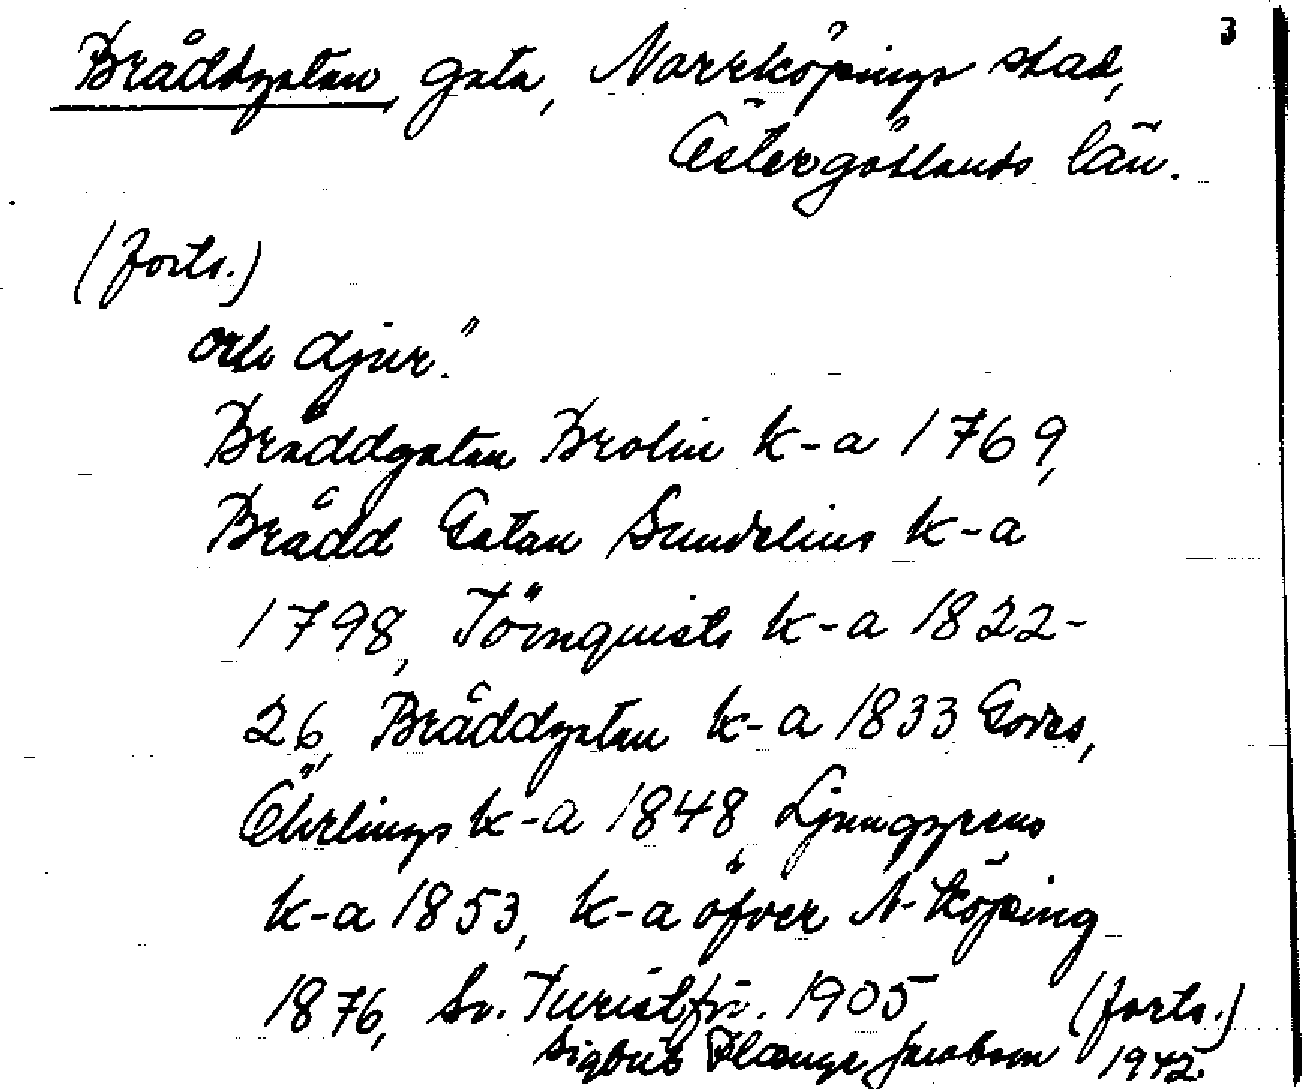 3
Bråddgatan, gata, Norrköpings stad,
Östergötlands län.
(forts.)
och djur."
Bråddgatan Brolin k-a 1769,
Brådd Gatan Sundelius k-a
1798, Törnquists k-a 1822-
26, Bråddgatan k-a 1833 Godes,
Öhrlings k-a 1848, Ljunggrens
k-a 1853, k-a öfver N-köping
1876, Sv. Turistför. 1905 (forts.)
Sigbrit Plænge Jacobson 1942.